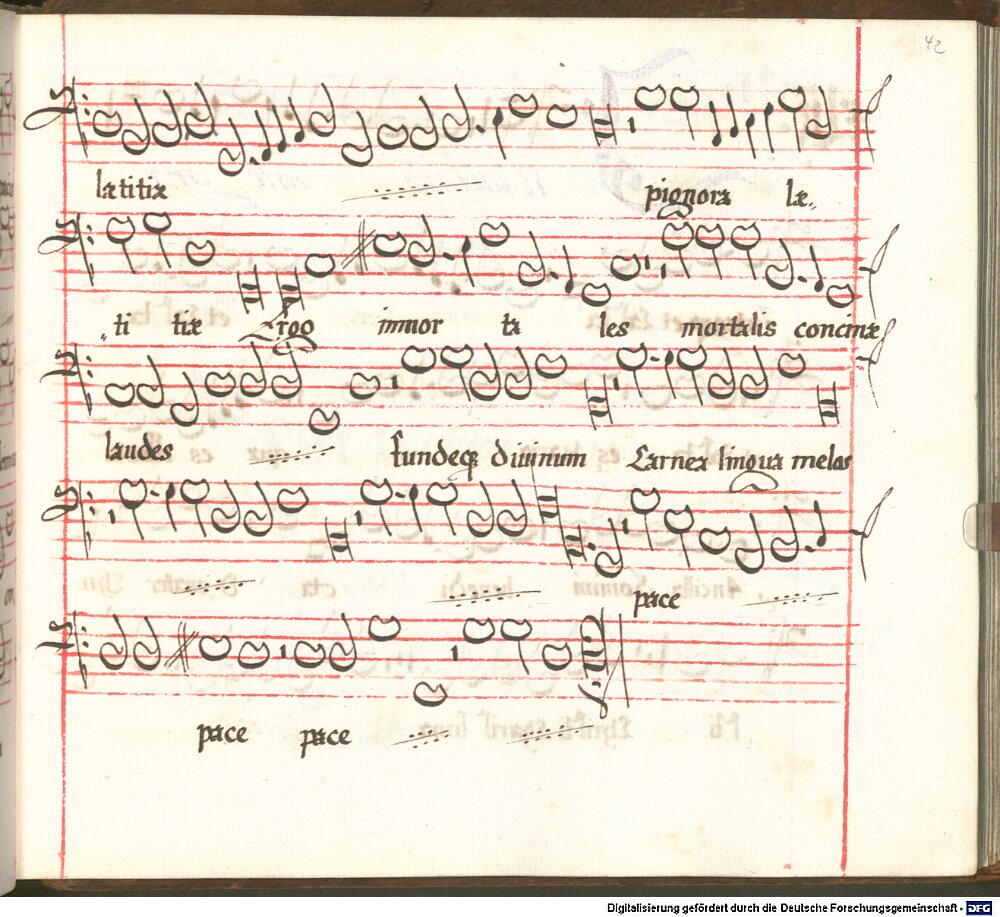 42
lætitiæ pignora læ„
„ti tiæ roo immor ta les mortalis concinæ
laudes fundeqȝ diuinum Carnea lingua melos
pace
pace pace
Digitalisierung gefördert durch die Deutsche Forschungsgemeinschaft - DFG